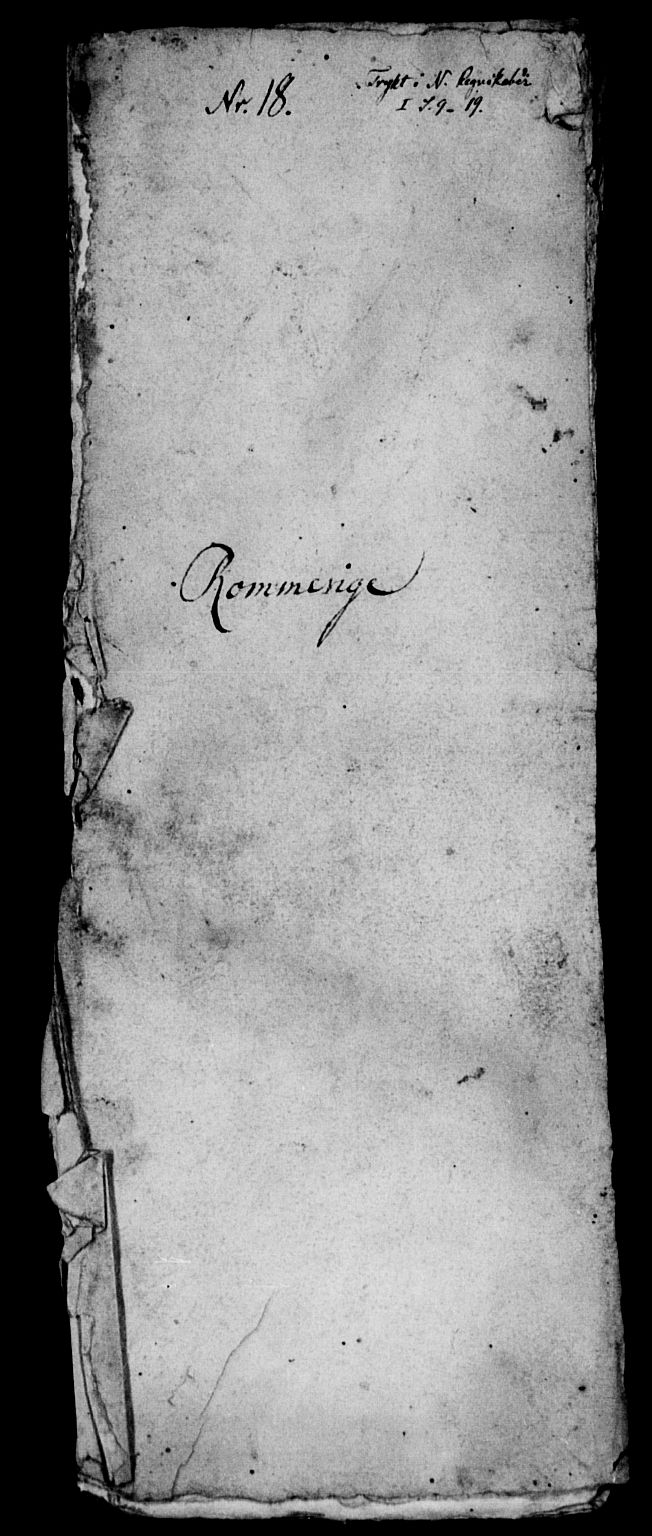 Nr. 18.
Trykt i N. Regnskaber
I S. 9-19.
Rommerige